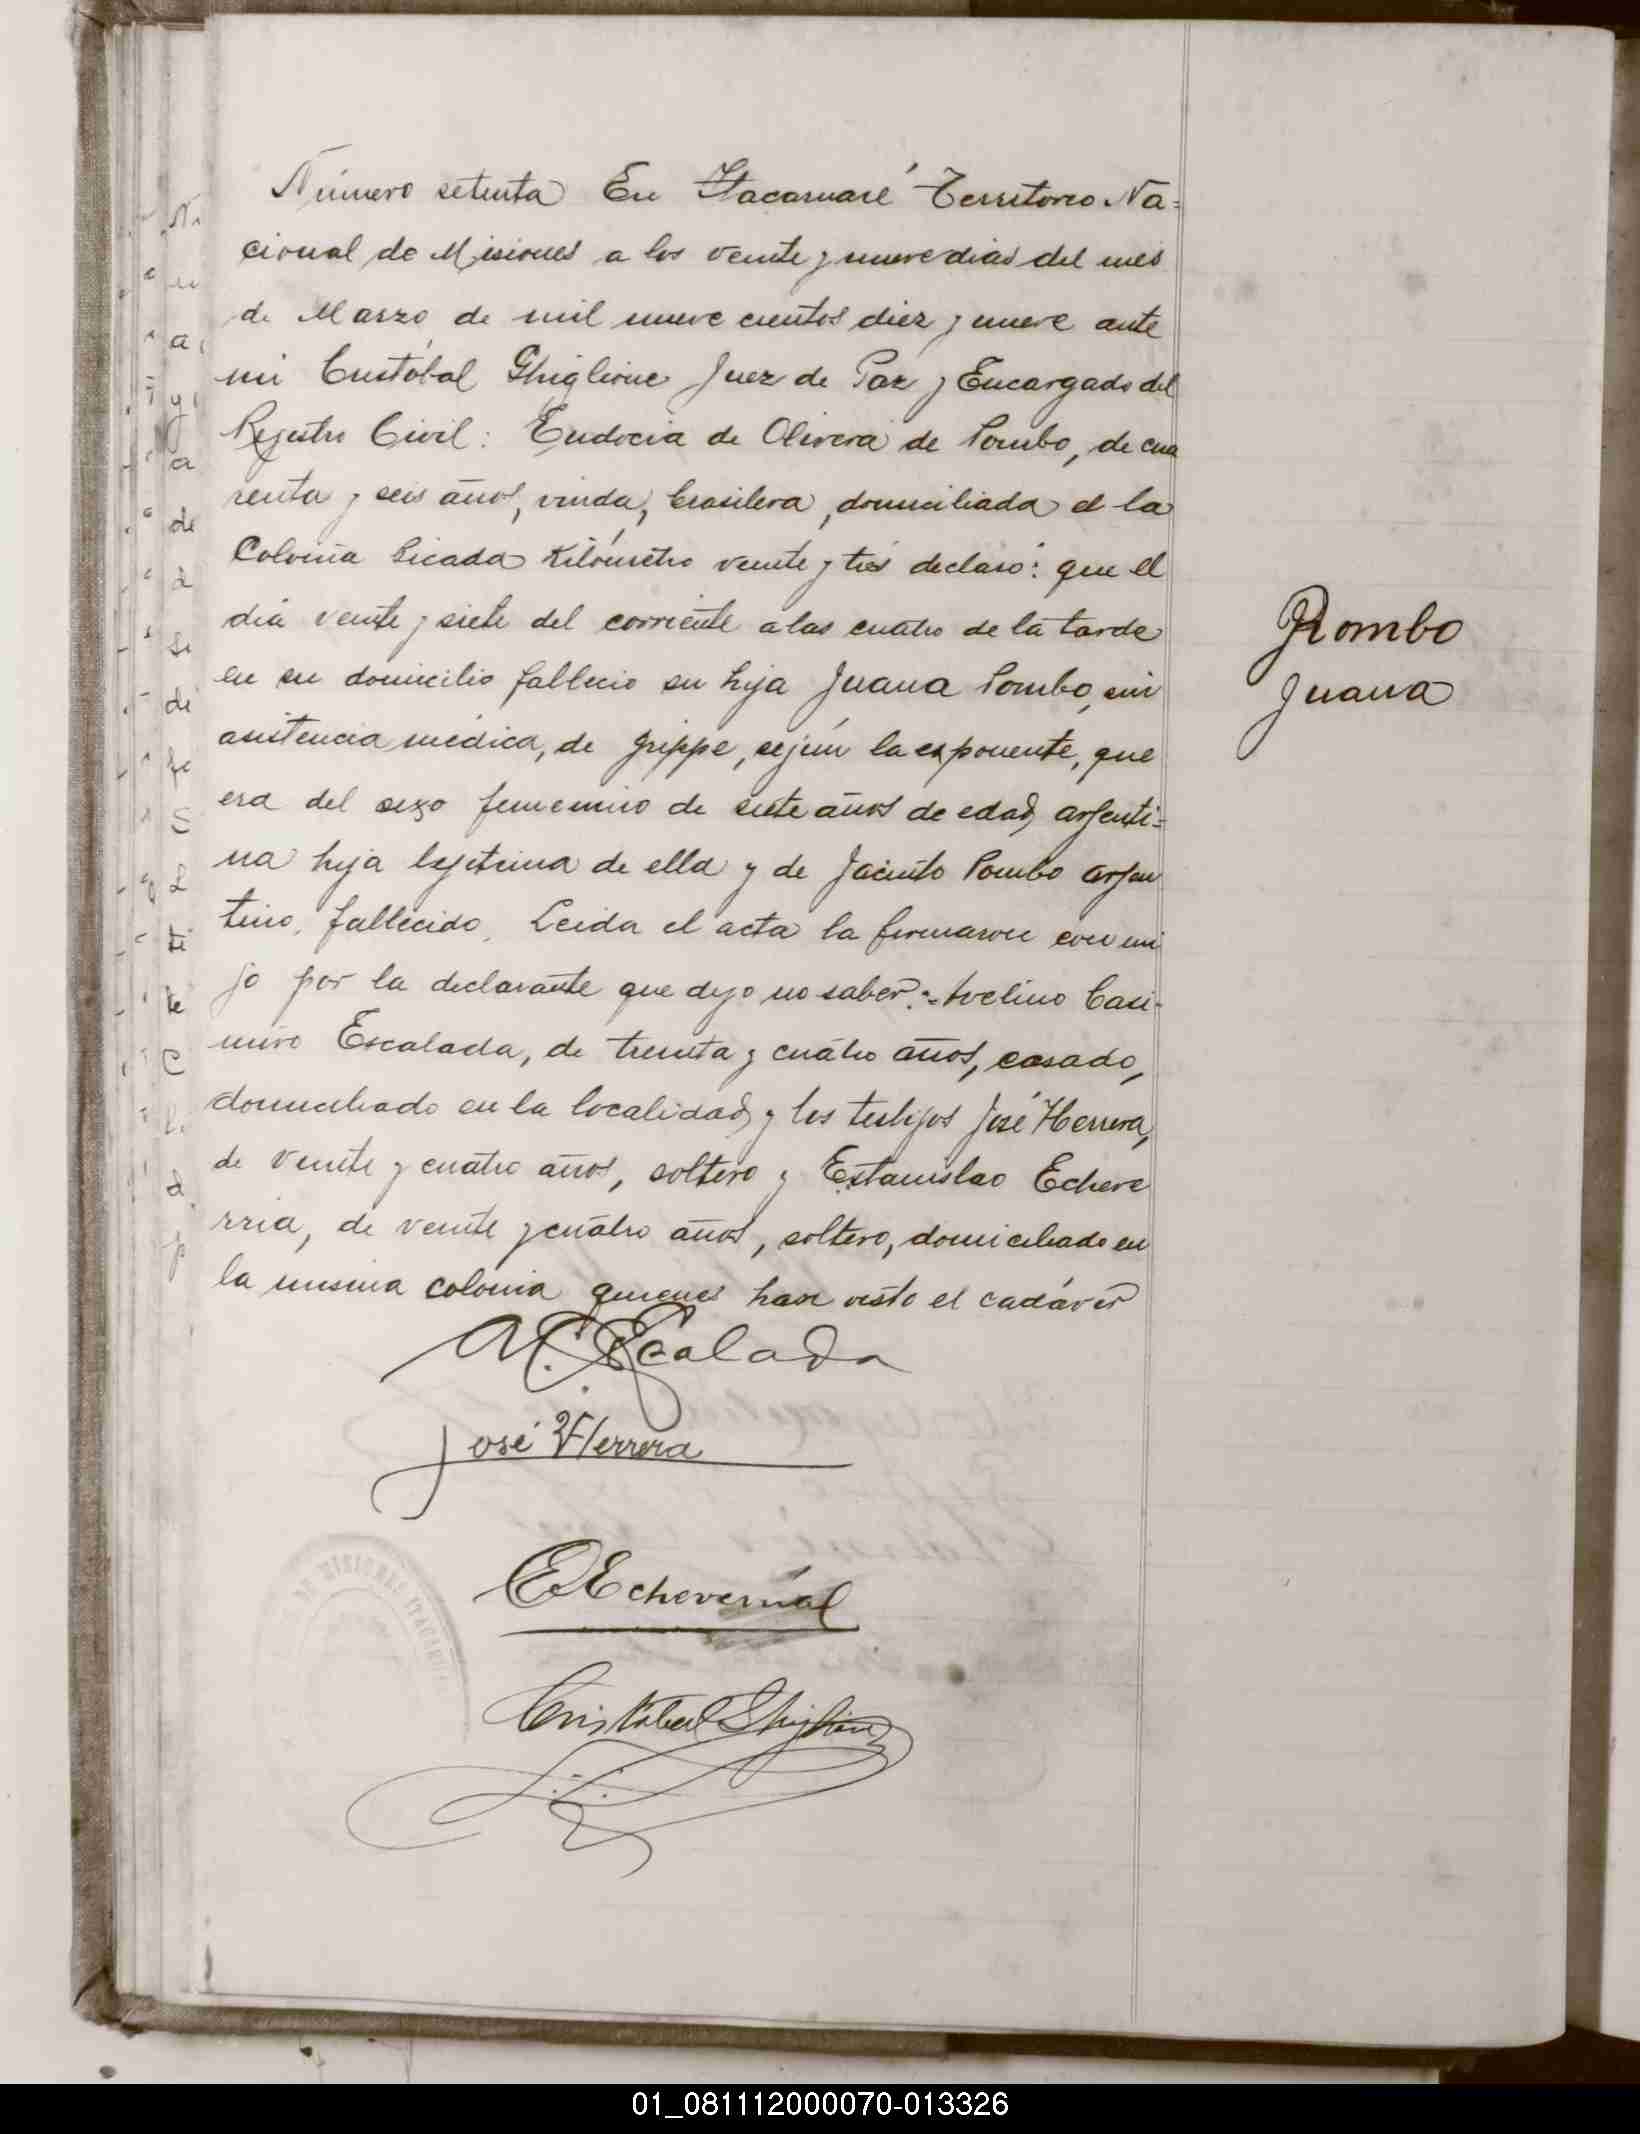 Número setenta En Itacaruaré Territorio Na=
cional de Misiones a los veinte y nueve dias del mes
de Marzo de mil nueve cientos diez y nueve ante
mi Cristóbal Ghiglione Juez de Paz y Encargado del
Rejistro Civil: Eudocia de Olivera de Pombo, de cua
renta y seis años, viuda, brasilera, domiciliada el la
Colonia Picada Kilómetro veinte y trés declaró: que el
dia veinte y siete del corriente a las cuatro de la tarde
en su domicilio fallecio su hija Juana Pombo, sin
asistencia médica, de grippe, sejún la esponente, que
era del sexo femenino de siete años de edad, arjenti=
na hija lejitima de ella y de Jacinto Pombo arjen
tino, fallecido. Leida el acta la firmaron con mi
jo por la declarante que dijo no saber:=Avelino Casi-
miro Escalada, de treinta y cuatro años, casado,
domiciliado en la localidad, y los testijos José Herrera,
de veinte y cuatro años, soltero y Estanislao Echeve
rria, de veinte y cuatro años, soltero, domiciliado en
la misma colonia quienes han visto el cadáver
Pombo
Juana
A. C. Escalada
José Herrera
E Echeverria
Cristobal Ghiglione
DE MISIONES ITACARUARE
01_081112000070-013326